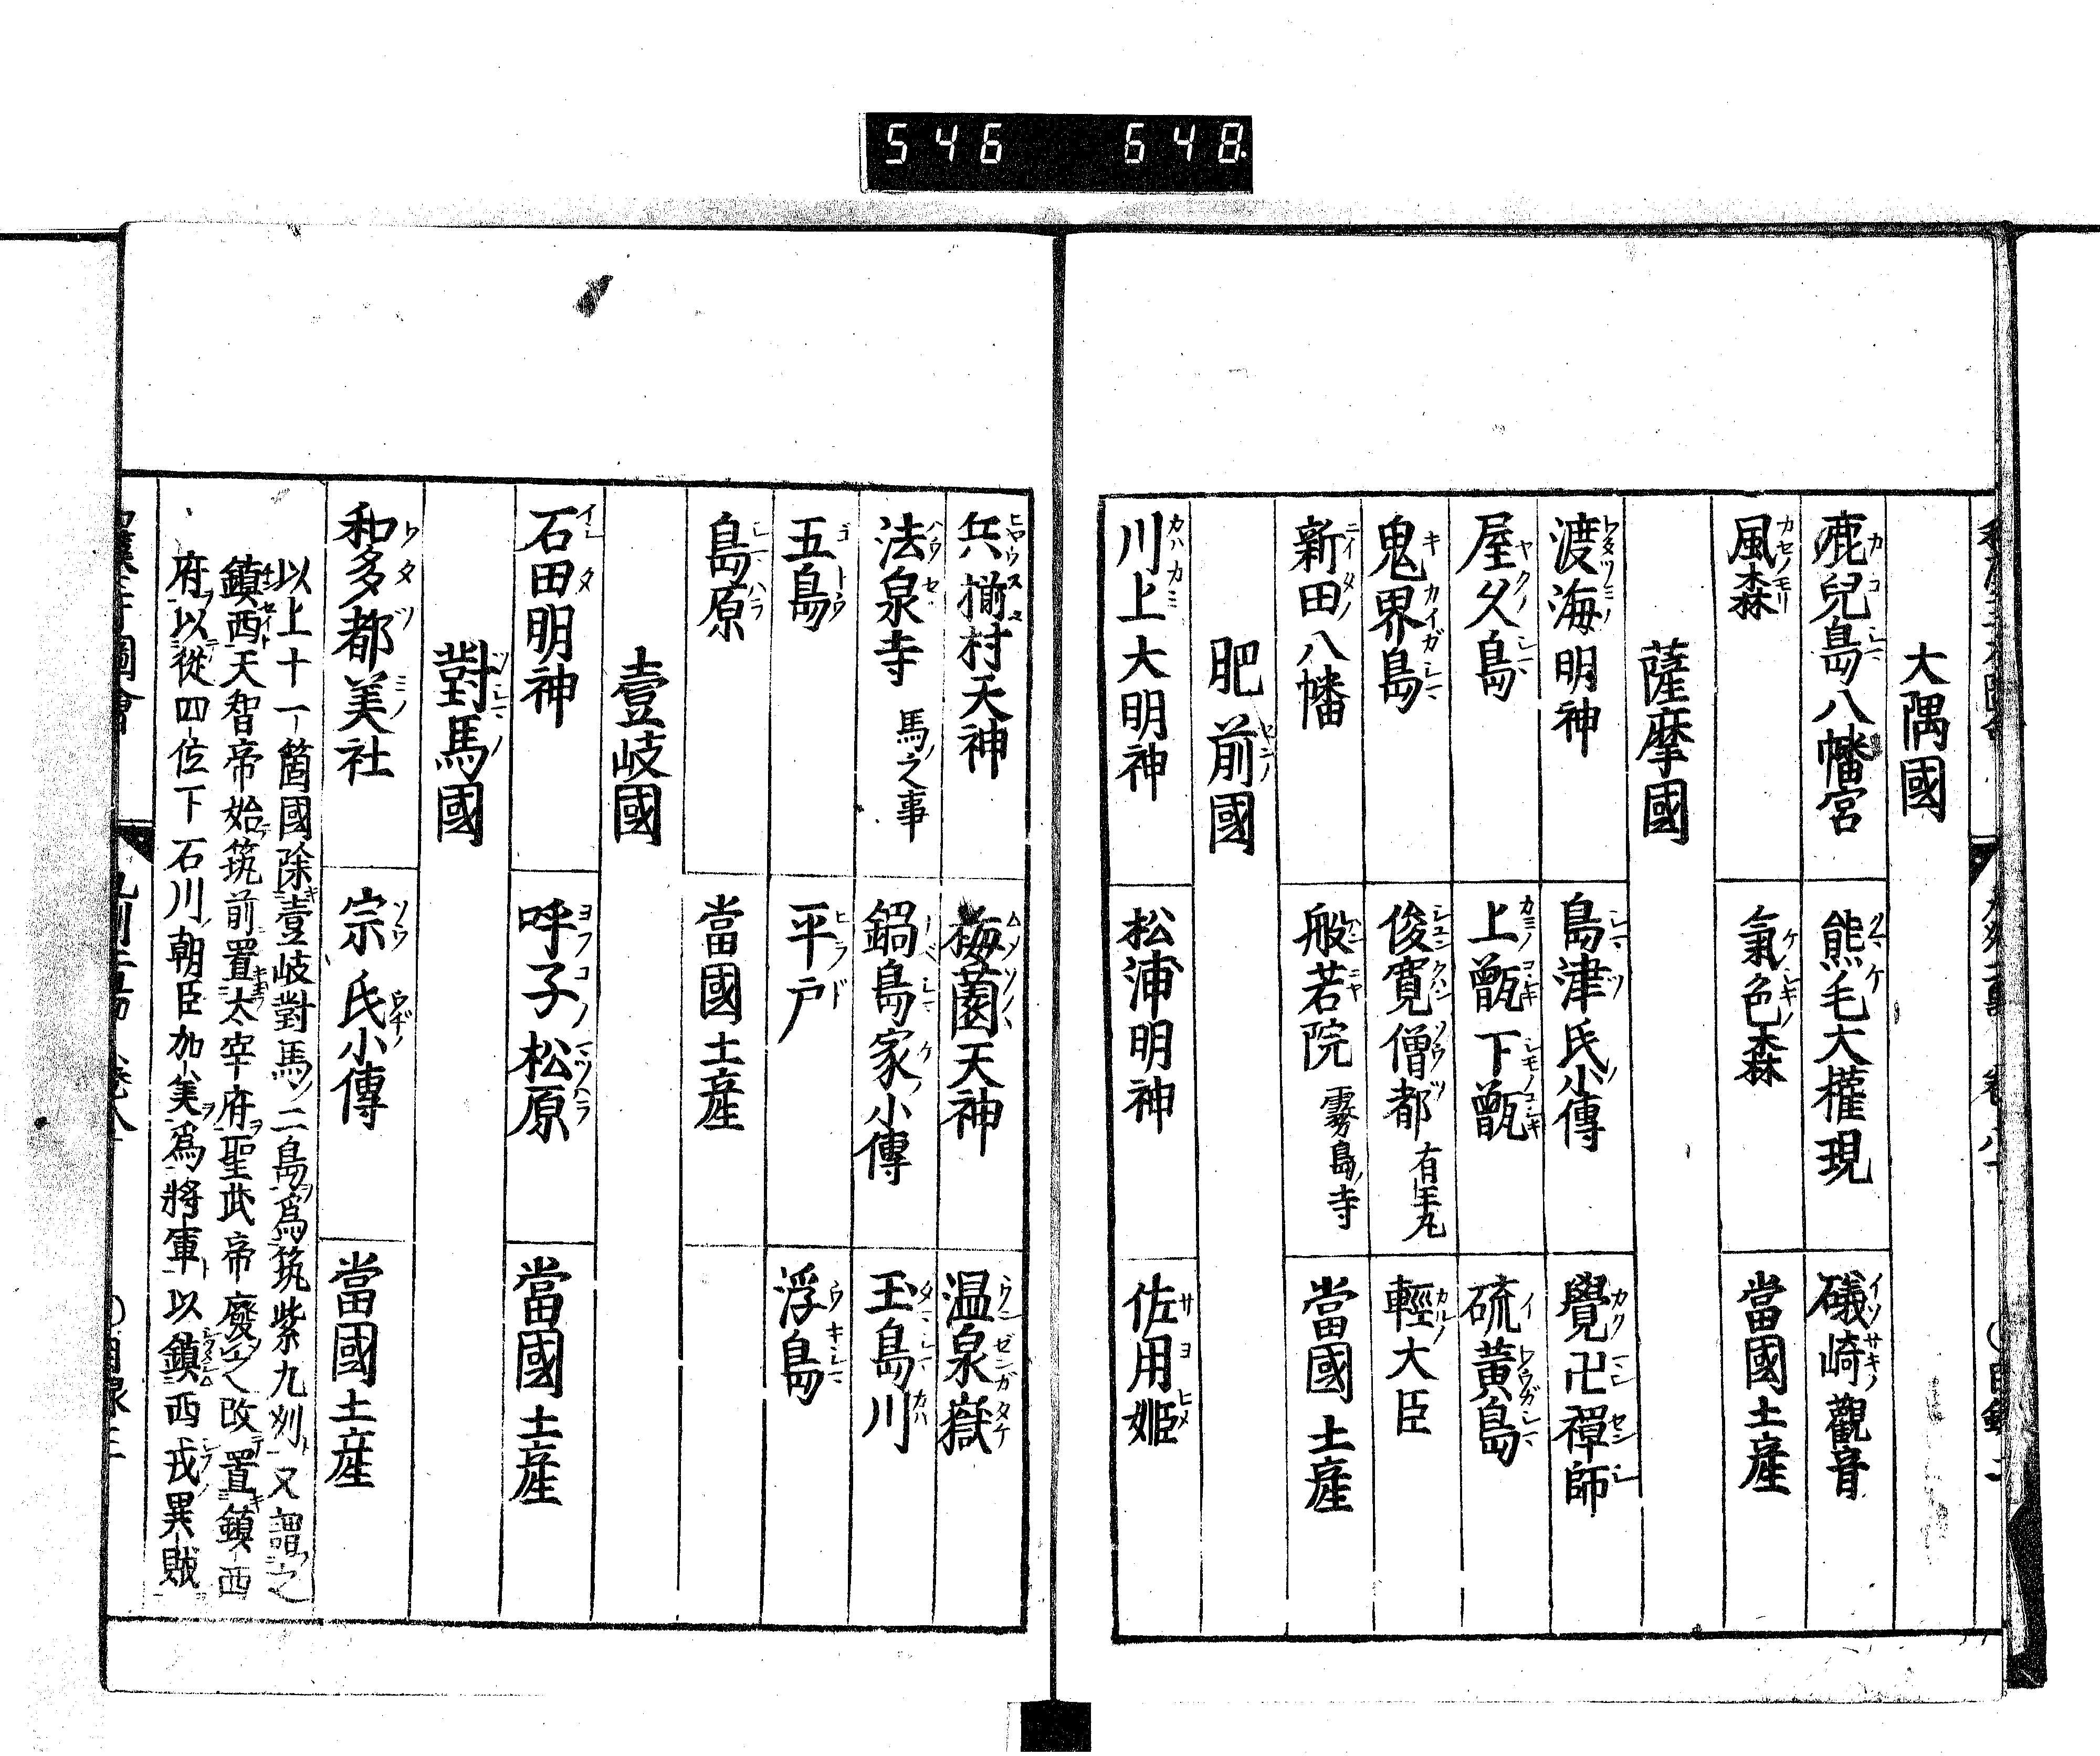 546 648
大隅國
鹿兒島八幡宮 熊毛大權現 礒﨑觀音
風森 氣色森 當國土産
薩摩國
渡海明神 島津氏小傳 覺卍禪師
屋久島 上甑下甑 硫黄島
鬼界島 俊寛僧都 有王丸 輕大臣
新田八幡 般若院 霧島寺 當國土産
肥前國
川上大明神 松浦明神 佐用姬
兵揃村天神 梅薗天神 温泉嶽
法泉寺 馬之事 鍋島家小傳 玉島川
五島 平戸 浮島
島原 當國土産
壹岐國
石田明神 呼子松原 當國土産
對馬國
和多都美社 宗氏小傳 當國土産
以上十一箇國除壹岐對馬二島爲筑紫九州又謂之
鎮西天智帝始筑前置太宰府聖武帝廢之改置鎮西
府以從四佐下石川朝臣加美爲將軍以鎮西戎異賊